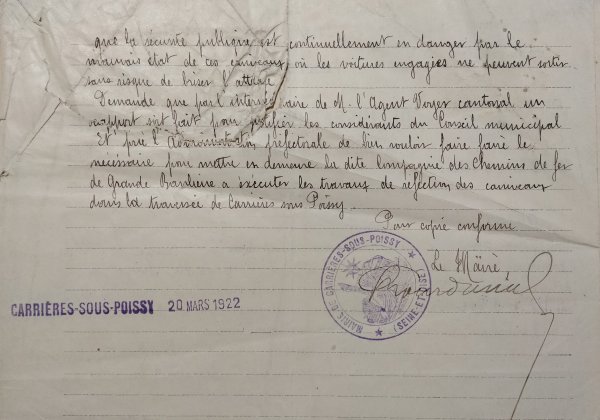 que la sécurité publique est continuellement en danger par le
mauvais état de ces caniveaux où les voitures engagées ne peuvent sortir
sans risque de briser l'attelage
Demande que par l'intermédiaire de M. l'Agent Voyer cantonal un
rapport soit fait pour justifier les considérants du Conseil municipal
Et prie l'Administration préfectorale de bien vouloir faire faire le
nécessaire pour mettre en demeure la dite Compagnie des Chemins de fer
de Grande Banlieue à exécuter les travaux de réfection des caniveaux
dans la traversée de Carrières sous Poissy.
Pour copie conforme
Le Maire,
MAIRIE DE CARRIÈRES-SOUS-POISSY
(SEINE-ET-OISE)
CARRIÈRES-SOUS-POISSY 20 MARS 1922